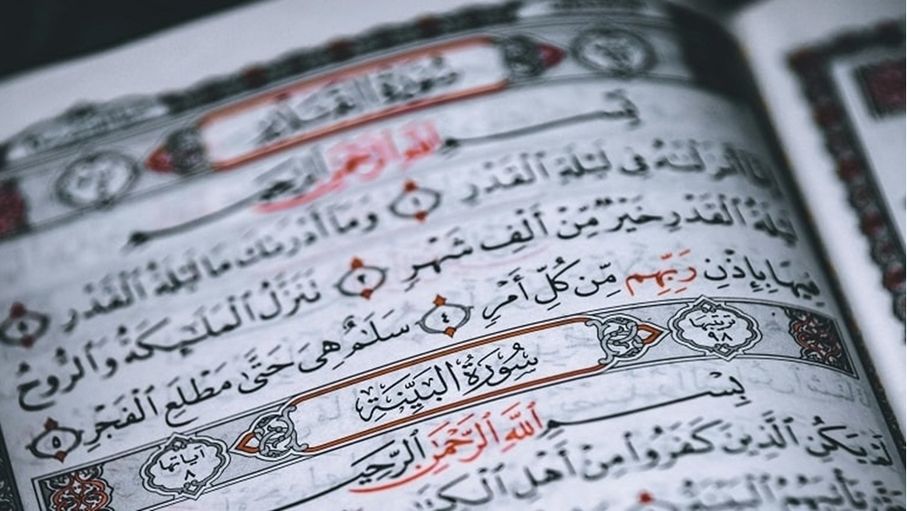 سُورَةُ القَدْرِ
بِسْمِ ٱللَّهِ ٱلرَّحْمَٰنِ ٱلرَّحِيمِ
إِنَّآ أَنزَلْنَٰهُ فِى لَيْلَةِ ٱلْقَدْرِ ١ وَمَآ أَدْرَىٰكَ مَا لَيْلَةُ ٱلْقَدْرِ ٢
لَيْلَةُ ٱلْقَدْرِ خَيْرٌ مِّنْ أَلْفِ شَهْرٍ ٣ تَنَزَّلُ ٱلْمَلَٰٓئِكَةُ وَٱلرُّوحُ
فِيهَا بِإِذْنِ رَبِّهِم مِّن كُلِّ أَمْرٍ ٤ سَلَٰمٌ هِىَ حَتَّىٰ مَطْلَعِ ٱلْفَجْرِ ٥
ترتيبها ٩٨ سُورَةُ البَيِّنَةِ آياتها ٨
بِسْمِ ٱللَّهِ ٱلرَّحْمَٰنِ ٱلرَّحِيمِ
لَمْ يَكُنِ ٱلَّذِينَ كَفَرُوا۟ مِنْ أَهْلِ ٱلْكِتَٰبِ
تَأْتِيَهُمُ ٱلْبَيِّنَةُ